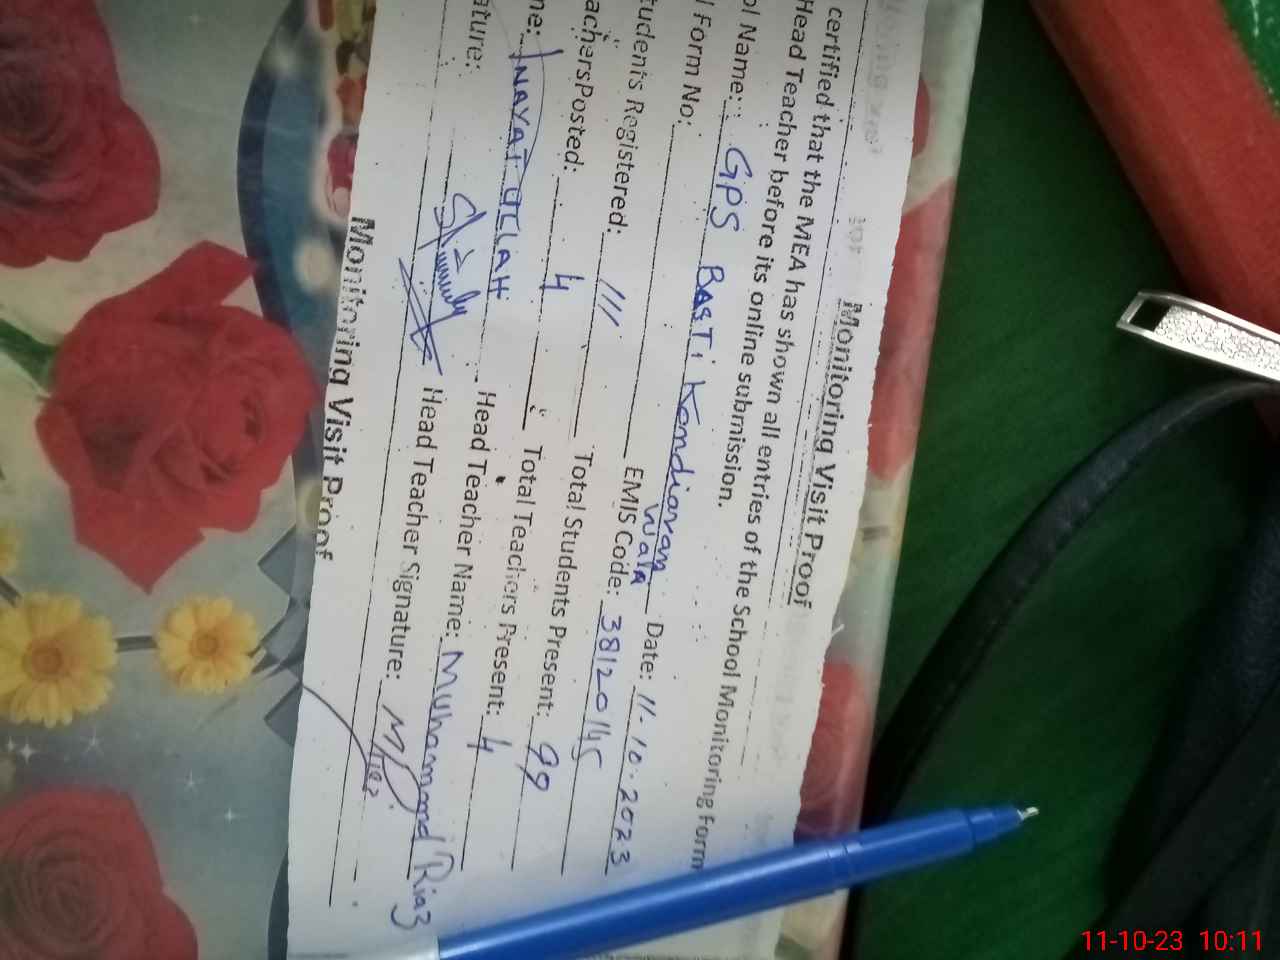 Monitoring Visit Proof
certified that the MEA has shown all entries of the School Monitoring Form
Head Teacher before its online submission.
ol Name: GPS BASTi Kondianan Wala Date: 11-10-2023
l Form No: EMIS Code: 38120145
tudents Registered: 111 Total Students Present: 99
achers Posted: 4 Total Teachers Present: 4
ne: INAYAT ULLAH Head Teacher Name: Muhammad Riaz
ature: Head Teacher Signature:
Monitoring Visit Proof
11-10-23 10:11